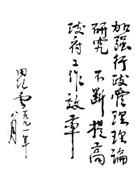 加强行政管理理论
研究 不断提高
政府工作效率
田纪云 一九九一年
八月